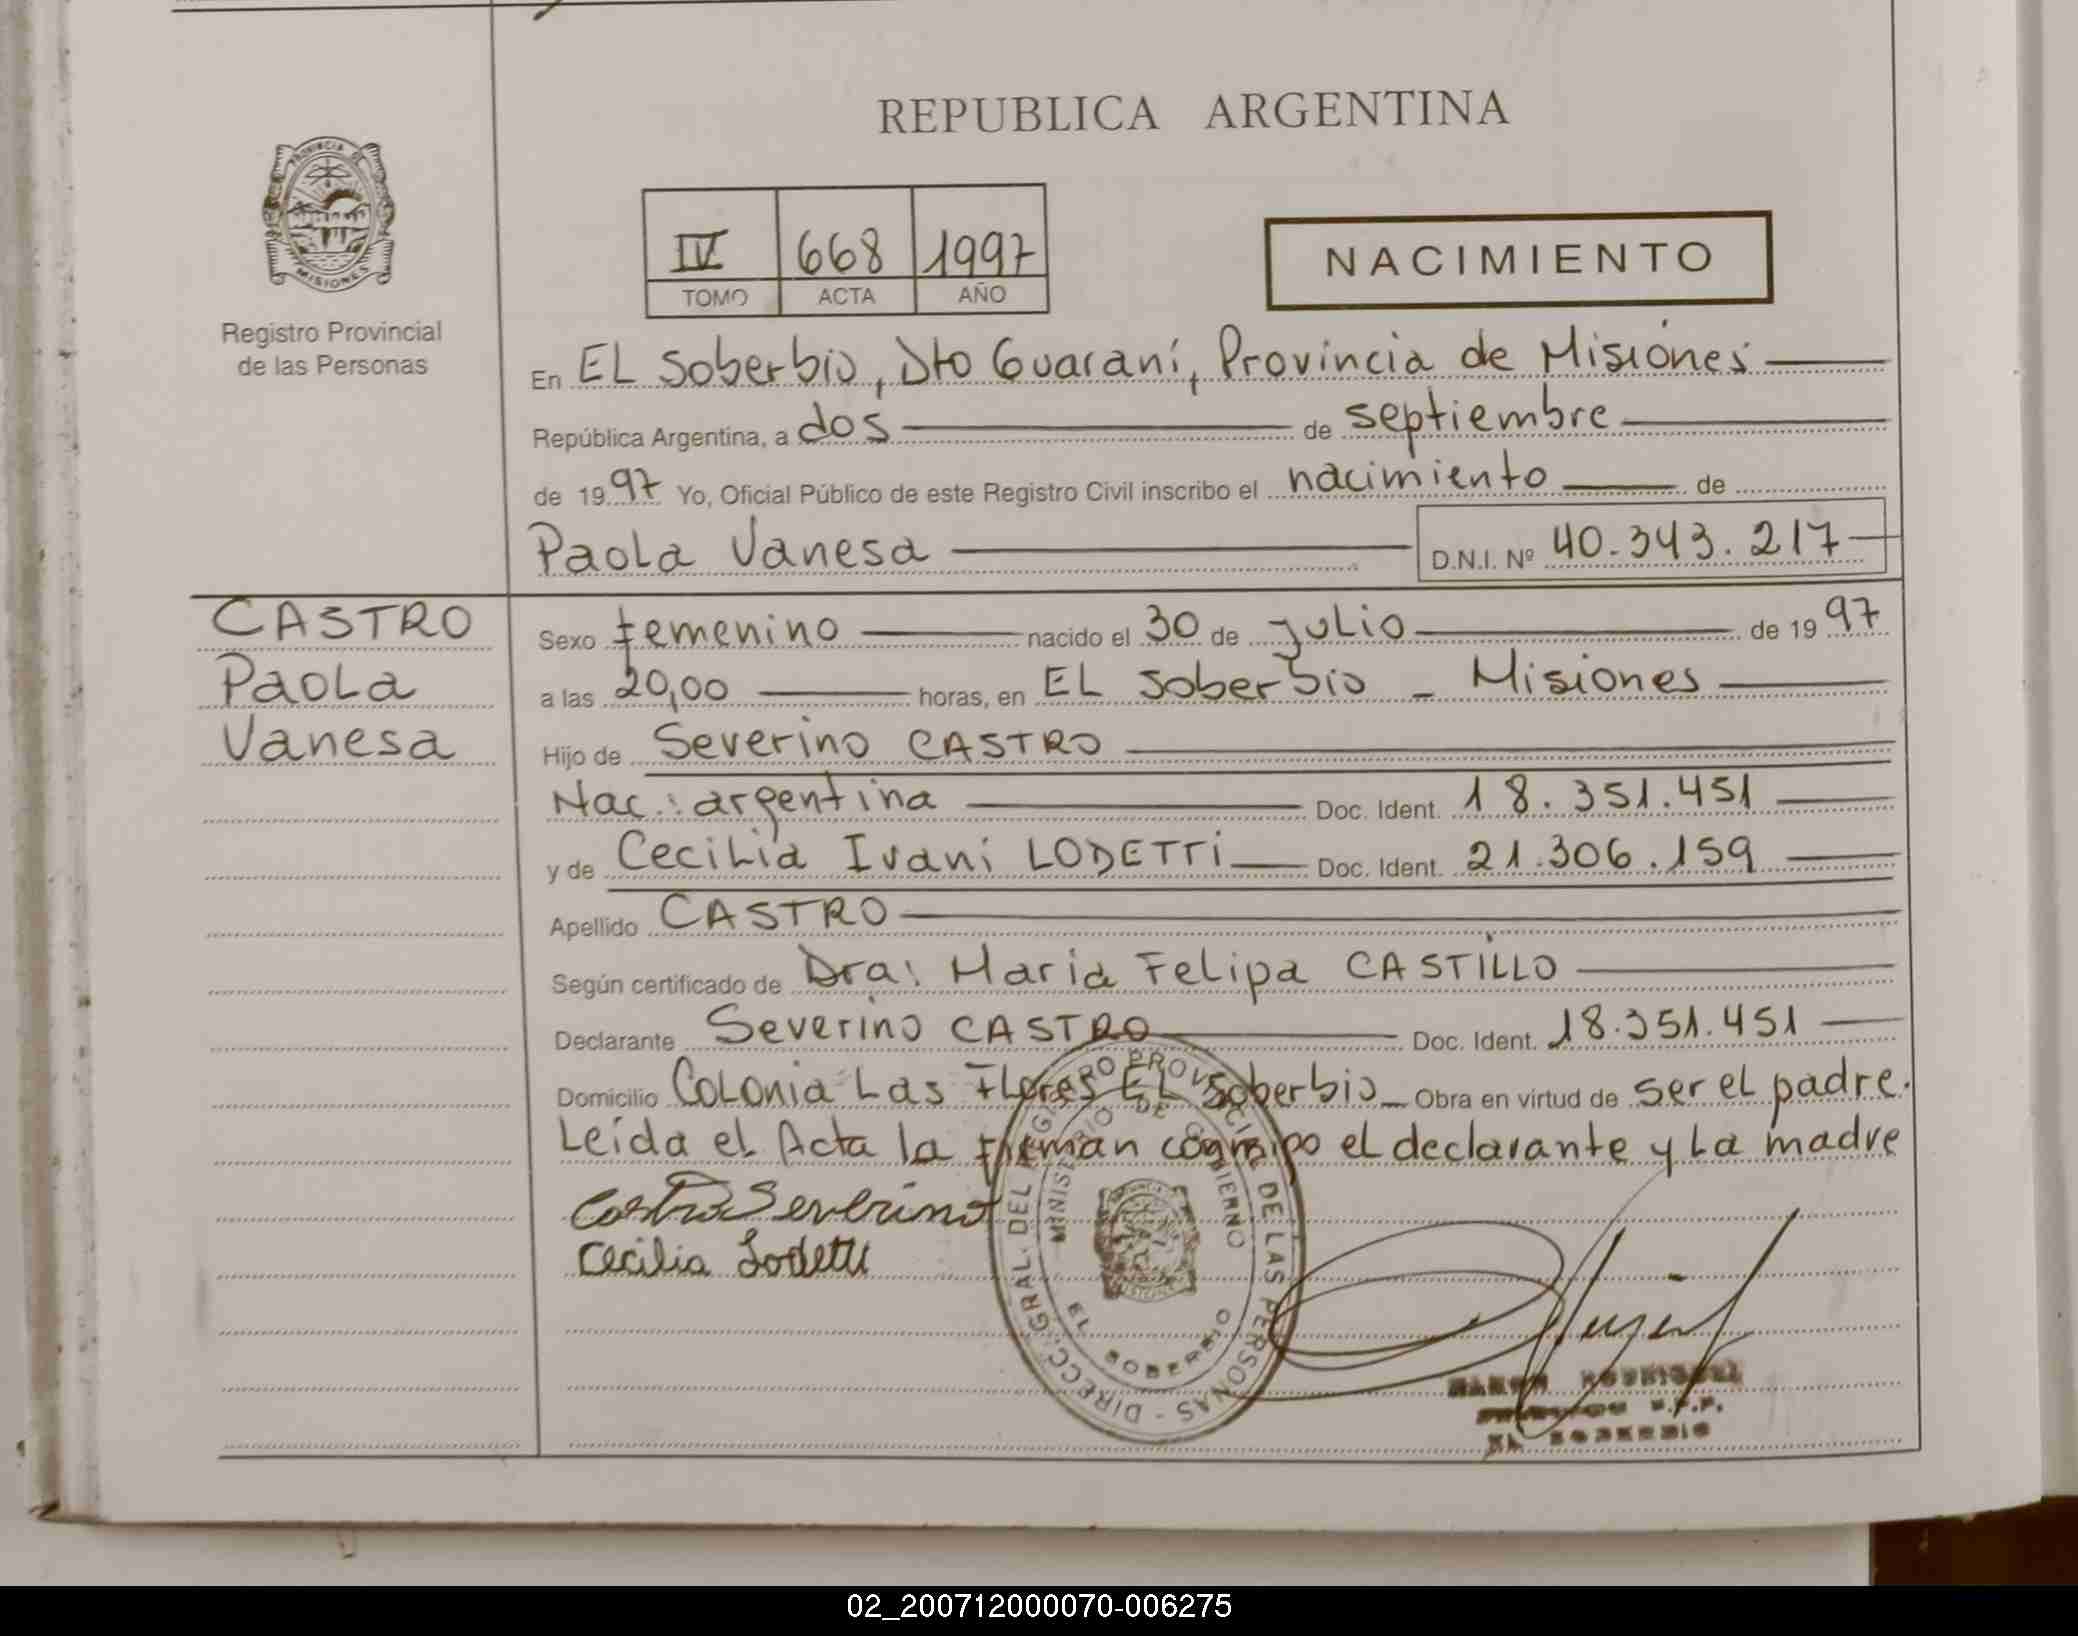 REPUBLICA ARGENTINA
PROVINCIA DE
MISIONES
Registro Provincial
de las Personas
IV 668 1997
TOMO ACTA AÑO
NACIMIENTO
En EL Soberbio, Dto Guaraní, Provincia de Misiones
República Argentina, a dos de septiembre
de 1997 Yo, Oficial Público de este Registro Civil inscribo el nacimiento de
Paola Vanesa D.N.I. Nº 40.343.217
CASTRO
Paola
Vanesa
Sexo femenino nacido el 30 de julio de 1997
a las 20,00 horas, en EL Soberbio - Misiones
Hijo de Severino CASTRO
Nac.: argentina Doc. Ident. 18.351.451
y de Cecilia Ivani LODETTi Doc. Ident. 21.306.159
Apellido CASTRO
Según certificado de Dra: Maria Felipa CASTILLO
Declarante Severino CASTRO Doc. Ident. 18.351.451
Domicilio Colonia Las Flores EL Soberbio Obra en virtud de ser el padre.
Leida el Acta la firman conmigo el declarante y La madre
Castro Severino
Cecilia Lodetti
DIRECC. GRAL. DEL REGISTRO PROVINCIAL DE LAS PERSONAS
MINISTERIO DE GOBIERNO
EL SOBERBIO
RODRIGUEZ
R.P.P.
EL SOBERBIO
02_200712000070-006275